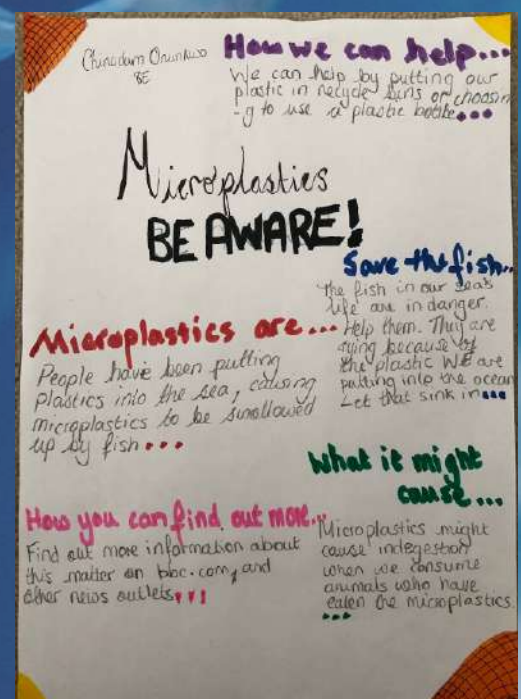 8E
How we can help...
We can help by putting our
plastic in recycle bins or choosin
-g to use a plastic bottle...
Microplastics
BE AWARE!
Save the fish...
The fish in our seas
life are in danger.
Help them. They are
dying because of
the plastic WE are
putting into the ocean
Let that sink in...
Microplastics are...
People have been putting
plastics into the sea, causing
microplastics to be swallowed
up by fish...
What it might
cause...
Microplastics might
cause indegestion
when we consume
animals who have
eaten the microplastics.
...
How you can find out more...
Find out more information about
this matter on bbc.com, and
other news outlets...